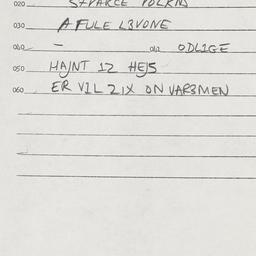 020 STVARCE POLKNS
030 A FULE L3VONE
040 - 042 ODL2GE
050 HAJNT 12 HEJS
060 ER VIL 21X ON VAR3MEN